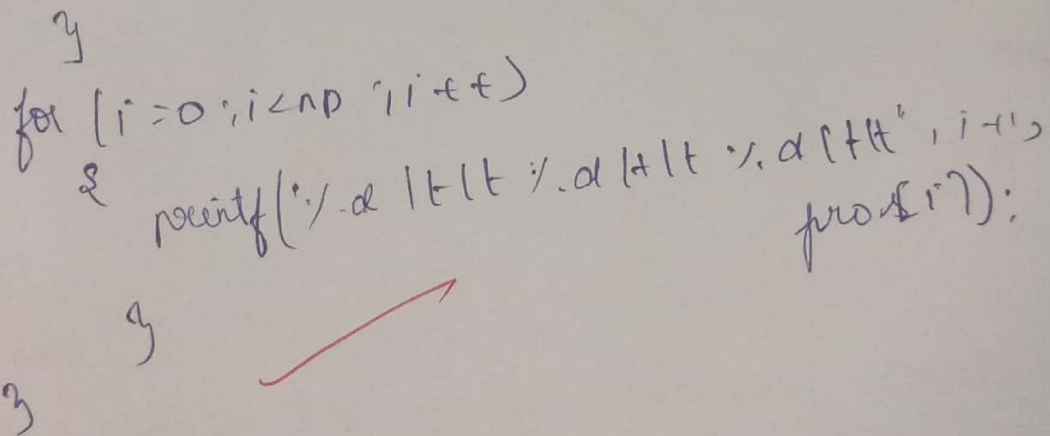 }
for (i=0; i<np ; i++)
{
printf("%d \t\t %d \t\t %d \t\t", i+1,
pro[i]);
}
}